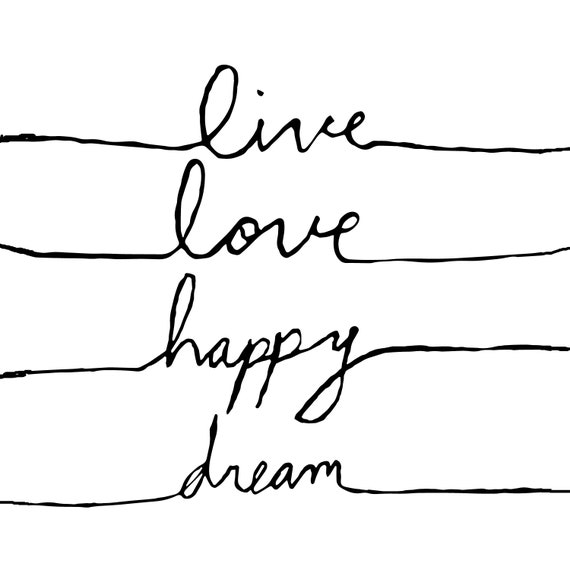 live
love
happy
dream